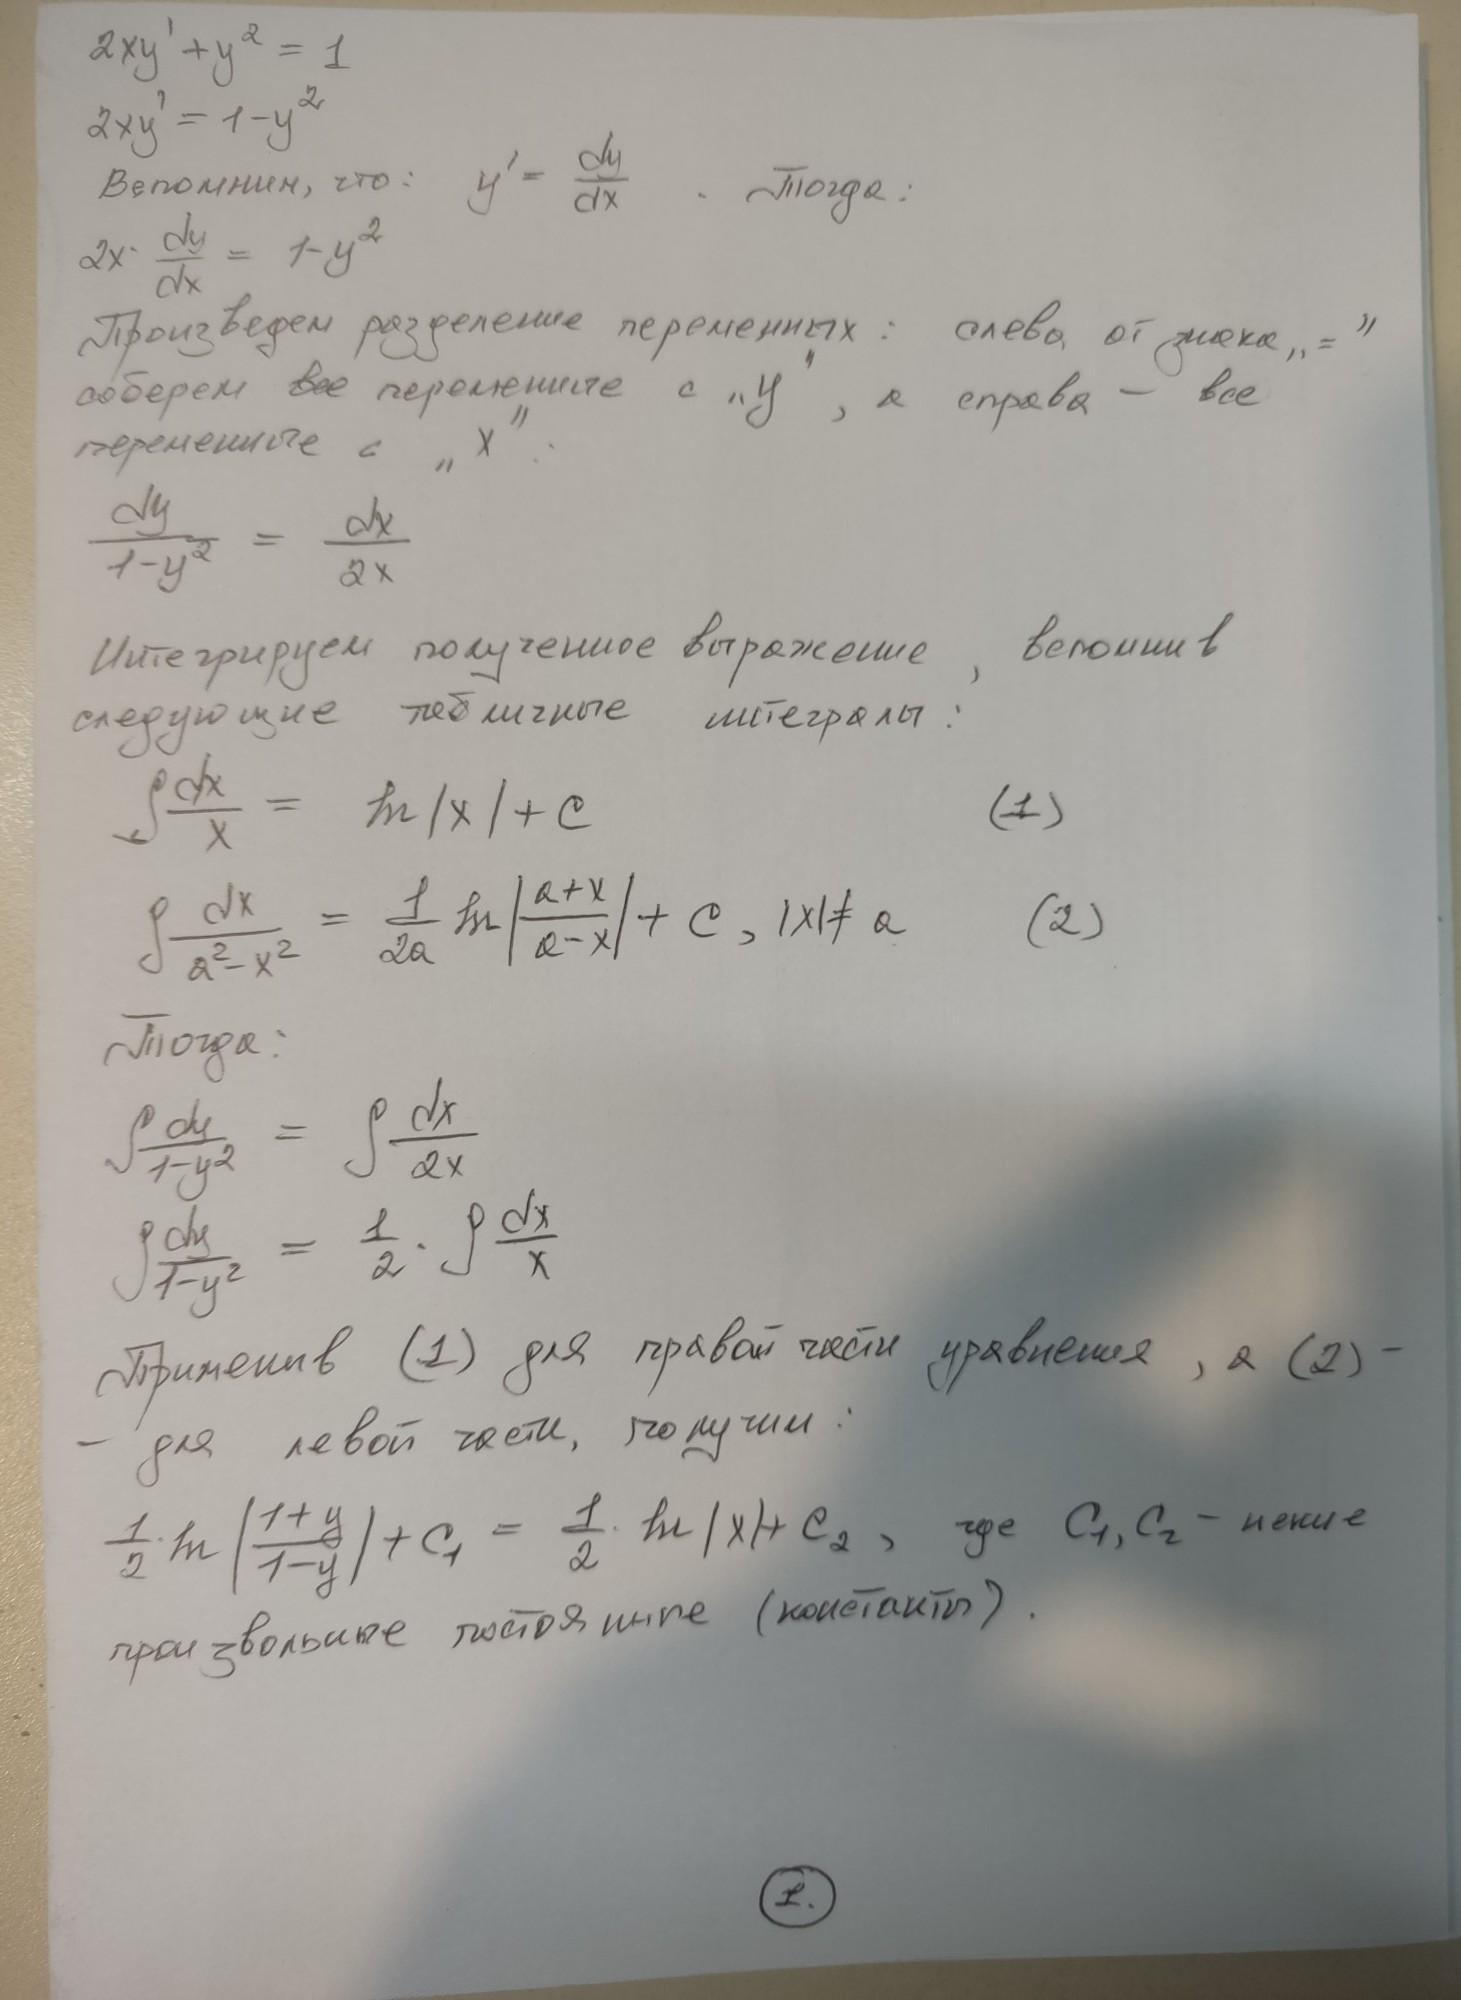 2xy' + y² = 1
2xy' = 1 - y²
Вспомним, что: y' = dy/dx. Тогда:
2x · dy/dx = 1 - y²
Произведем разделение переменных: слева от знака „="
соберем все переменные с „y", а справа — все
переменные с „x":
dy/(1-y²) = dx/2x
Интегрируем полученное выражение, вспомнив
следующие табличные интегралы:
∫dx/x = ln|x| + C (1)
∫dx/(a²-x²) = 1/2a ln|(a+x)/(a-x)| + C, |x| ≠ a (2)
Тогда:
∫dy/(1-y²) = ∫dx/2x
∫dy/(1-y²) = 1/2 · ∫dx/x
Применив (1) для правой части уравнения, а (2) -
- для левой части, получим:
1/2 · ln|(1+y)/(1-y)| + C₁ = 1/2 · ln|x| + C₂, где C₁, C₂ - некие
произвольные постоянные (константы).
1.